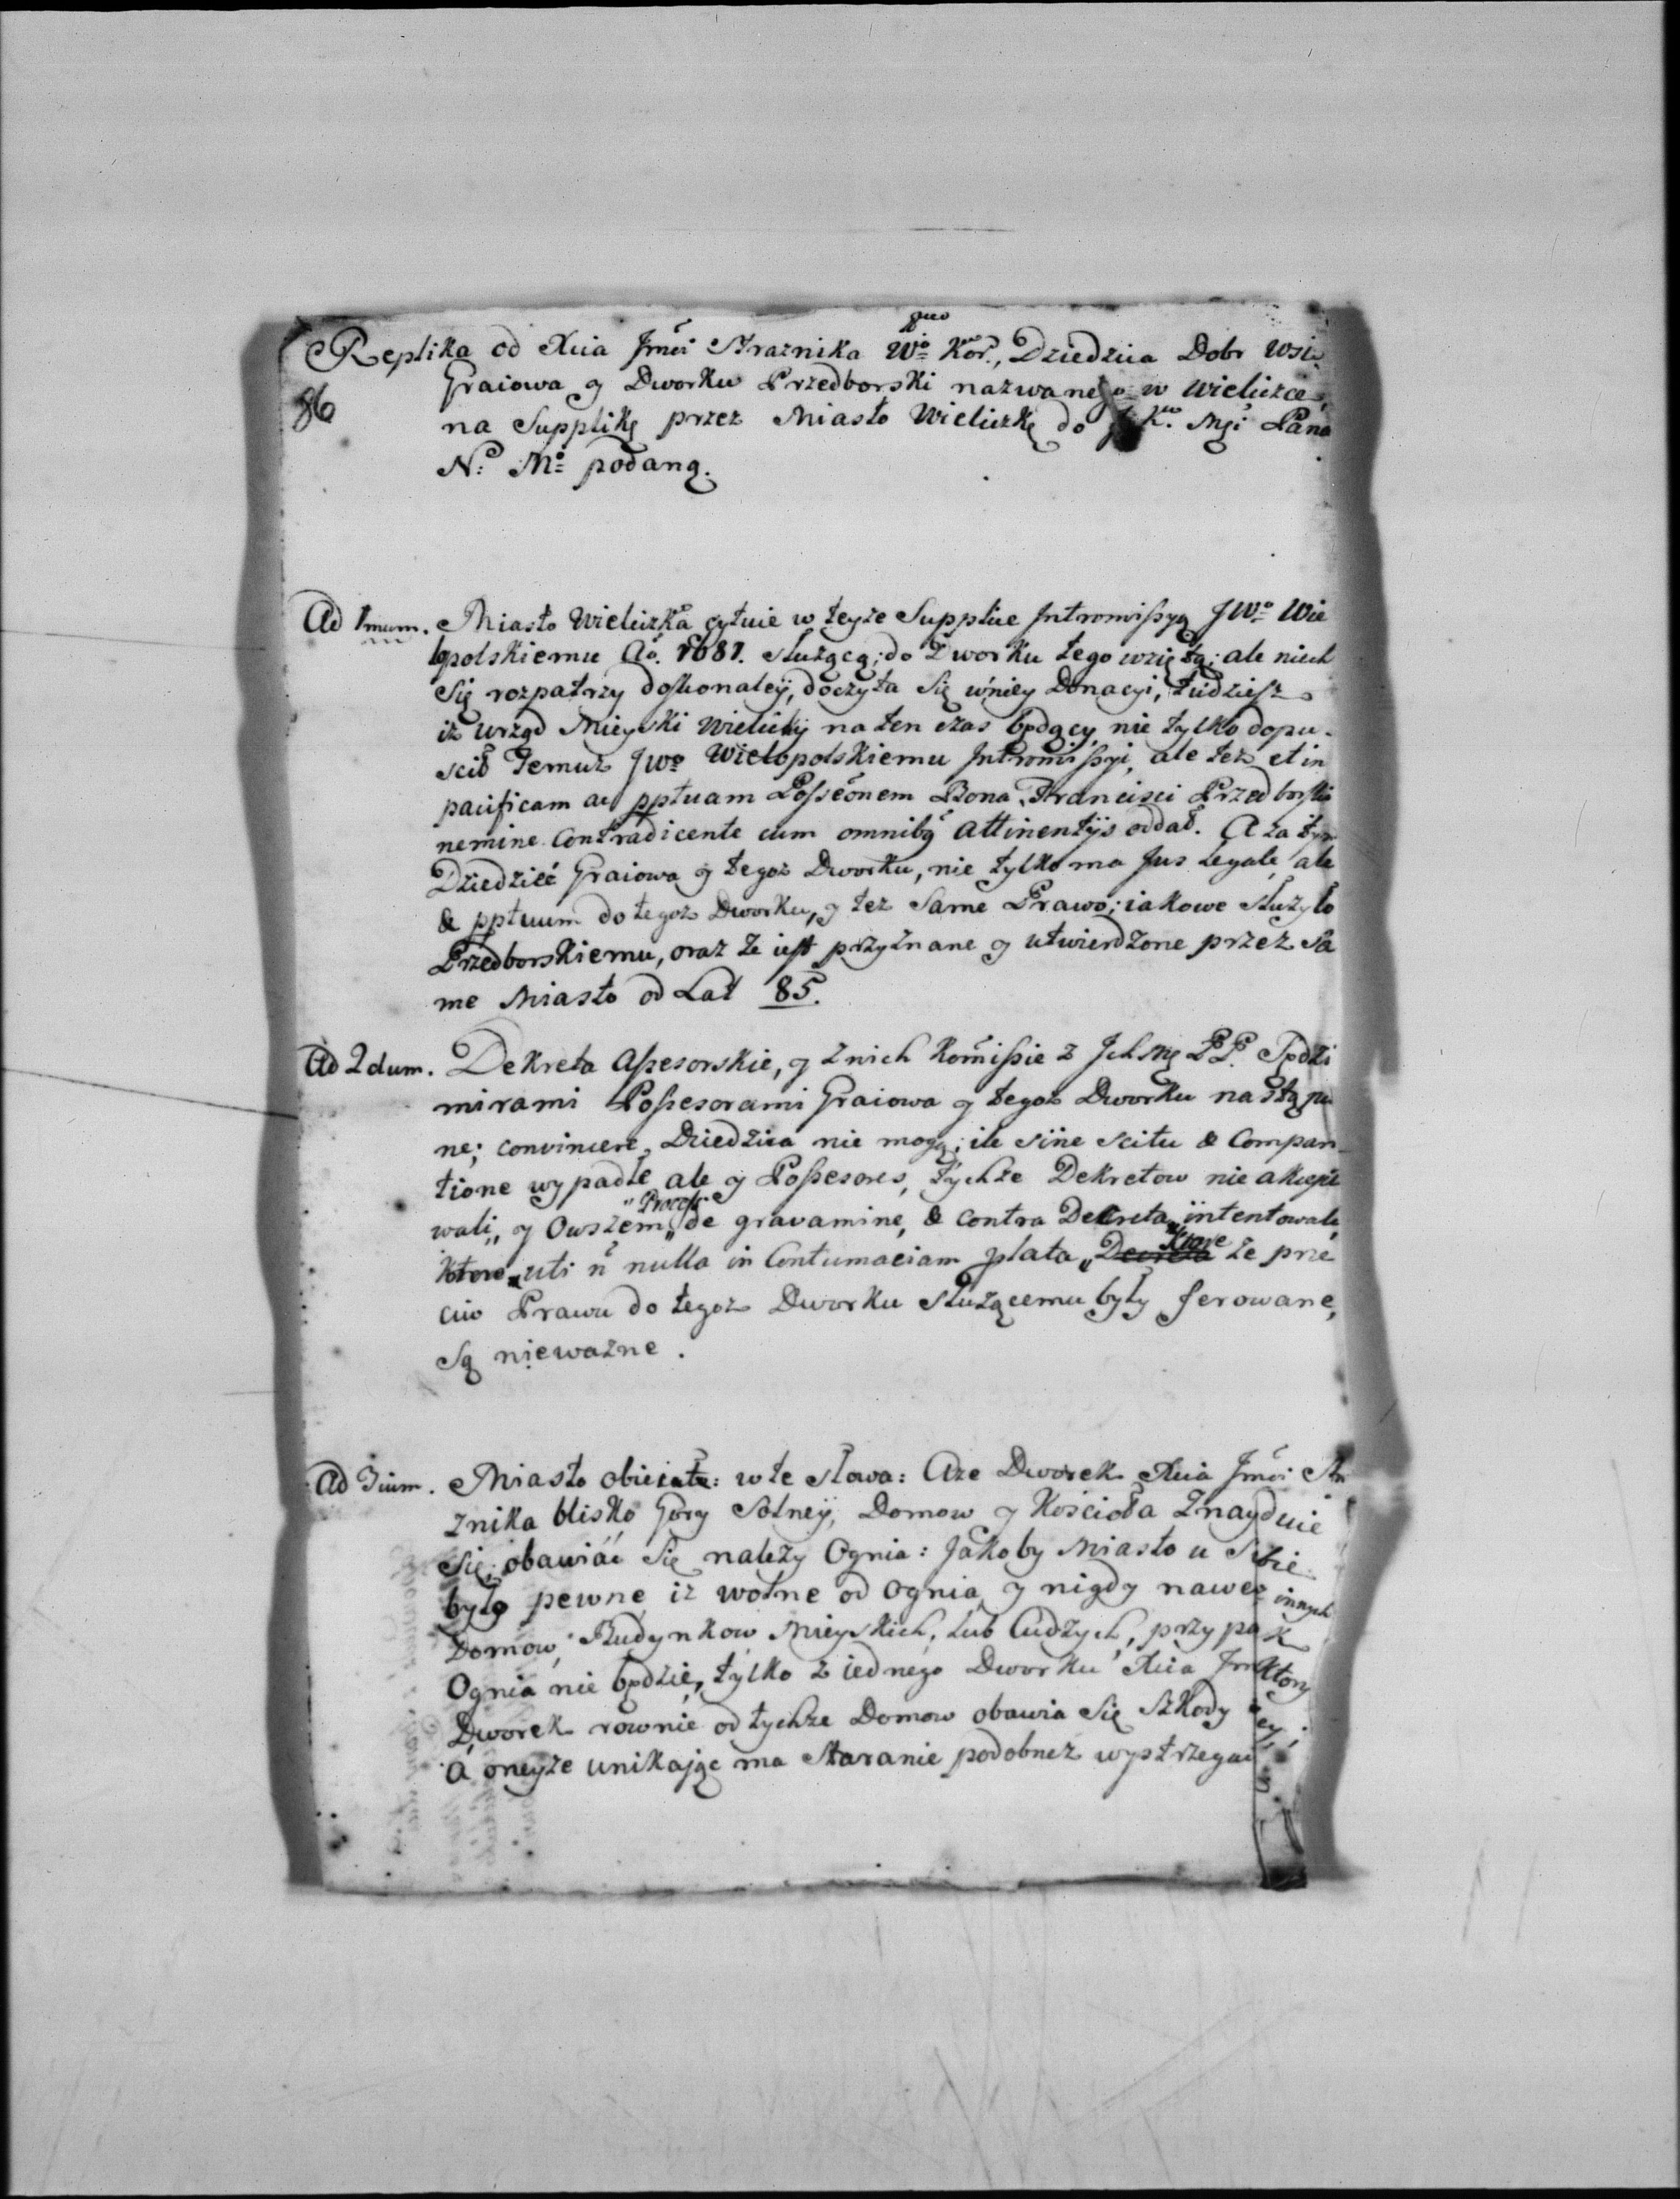 Replika od Xcia Jmći Strażnika Wgo Kor., Dziedzica Dobr Wsi
Graiowa y Dworku Przedborski nazwanego w Wieliczce,
86
na Supplikę przez Miasto Wieliczkę do J. K. Mći Pana
N: Mo podaną.
Ad 1mum. Miasto Wieliczka cytuie w teyże Supplice Intromissyą JWo Wie
lopolskiemu Ao. 1681. służącą; do Dworku tego wziętą; ale niech
się rozpatrzy doskonaley, doczyta się w niey Donacyi, tudziesz
iż Urząd Mieyski Wielicky na ten czas będący, nie tylko dopu-
scił Temuż JWo Wielopolskiemu Intromissyi, ale też et in
pacificam ac pptuam Posseonem Bona Francisci Przedborski
nemine Contradicente cum omnibq attinentijs oddał. A za tym
Dziedzić Graiowa y tegoż Dworku, nie tylko ma Jus Legale, ale
& pptuum do tegoż Dworku, y też Same Prawo; iakowe służyło
Przedborskiemu, oraz że iest przyznane y utwierdzone przez Sa
me Miasto od Lat 85.
Ad 2dum. Dekreta Assesorskie, y z nich Komissie z Jch Mę PP. Jędzi
mirami Possesorami Graiowa y tegoż Dworku nastąpio
ne; convincere Dziedzica nie mogą; ile sine scitu & Compari
tione wypadłe ale y Possesores, tychże Dekretow nie akcepto
wali,, y Owszem,, Process de gravamine, & contra Decreta intentowali,
Ktore uti n nulla in Contumaciam plata,, Decreta Ktore że prze
ciw Prawu do tegoż Dworku służącemu były ferowane,
Są nieważne.
Ad 3ium. Miasto obiciate: w te słowa: Aże Dworek Xcia Jmći Stra
żnika blisko Gory Solney, Domow y Kościoła Znayduie
się; obawiać się należy Ognia: Jakoby Miasto u Siebie
było pewne iż wolne od Ognia, y nigdy nawet innych
Domow, Budynkow Mieyskich, lub Cudzych, przypadk
Ognia nie będzie, tylko z iednego Dworku Xcia Jm Ktory
Dworek rownie od tychże Domow obawia się Szkody
A oneyże unikając ma Staranie podobneż wystrzegać